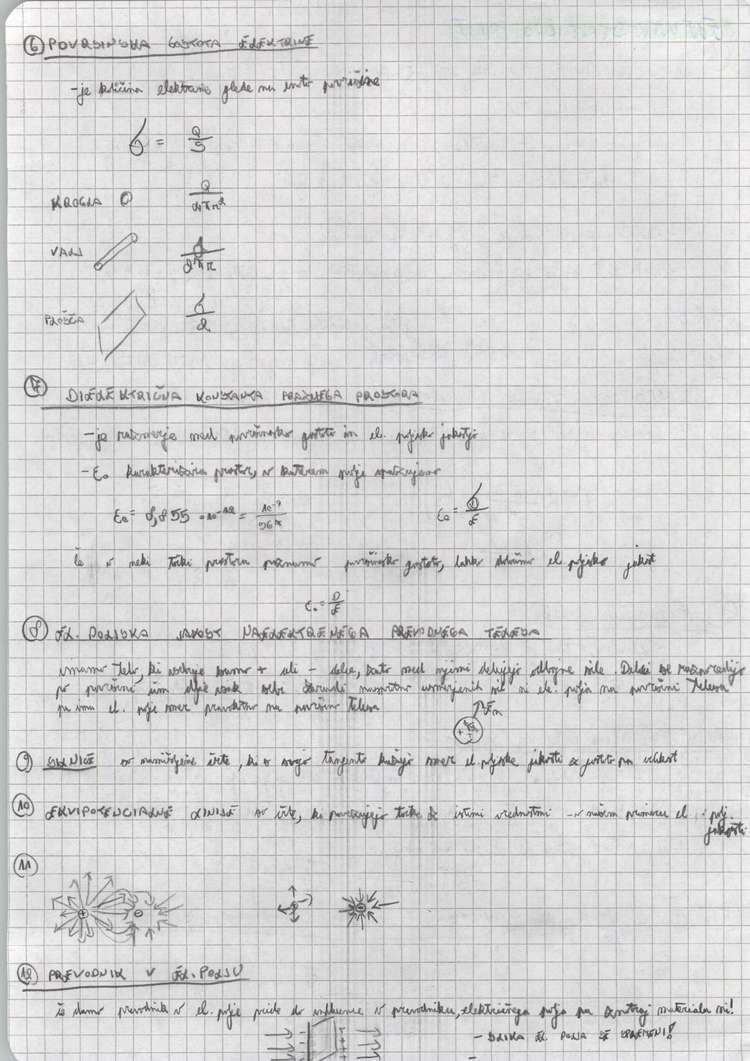 6 POVRŠINSKA GOSTOTA ELEKTRINE
- je količina elektrine glede na enoto površine
σ = Q/S
KROGLA Q/4πr²
VALJ q/2πr
PLOŠČA σ/2
7 DIELEKTRIČNA KONSTANTA PRAZNEGA PROSTORA
- je razmerje med površinsko gostoto in el. poljsko jakostjo
- ε₀ karakterizira prostor, v katerem polje opazujemo
ε₀ = 8,855 · 10⁻¹² = 10⁻⁹/36π ε₀ = σ/E
če v neki točki prostora poznamo površinsko gostoto, lahko določimo el. poljsko jakost
ε₀ = D/E
8 EL. POLJSKA JAKOST NAELEKTRENEGA PREVODNEGA TELESA
imamo telo, ki vsebuje samo + ali - delce, zato med njimi delujejo odbojne sile. Delci se razporedijo
po površini čim dlje vsak sebe zaradi nasprotno usmerjenih sil ni el. polja na površini telesa
pa ima el. polje smer pravokotno na površino telesa
9 SILNICE so namišljene črte, ki s svojo tangento kažejo smer el. poljske jakosti z gostoto pa velikost
10 EKVIPOTENCIALNE LINIJE so črte, ki povezujejo točke z istimi vrednostmi - v našem primeru el. polj.
jakosti
11
+ -
12 PREVODNIK V EL. POLJU
če damo prevodnik v el. polje pride do influence v prevodniku, električnega polja pa znotraj materiala ni!
- SLIKA EL. POLJA SE SPREMENI!